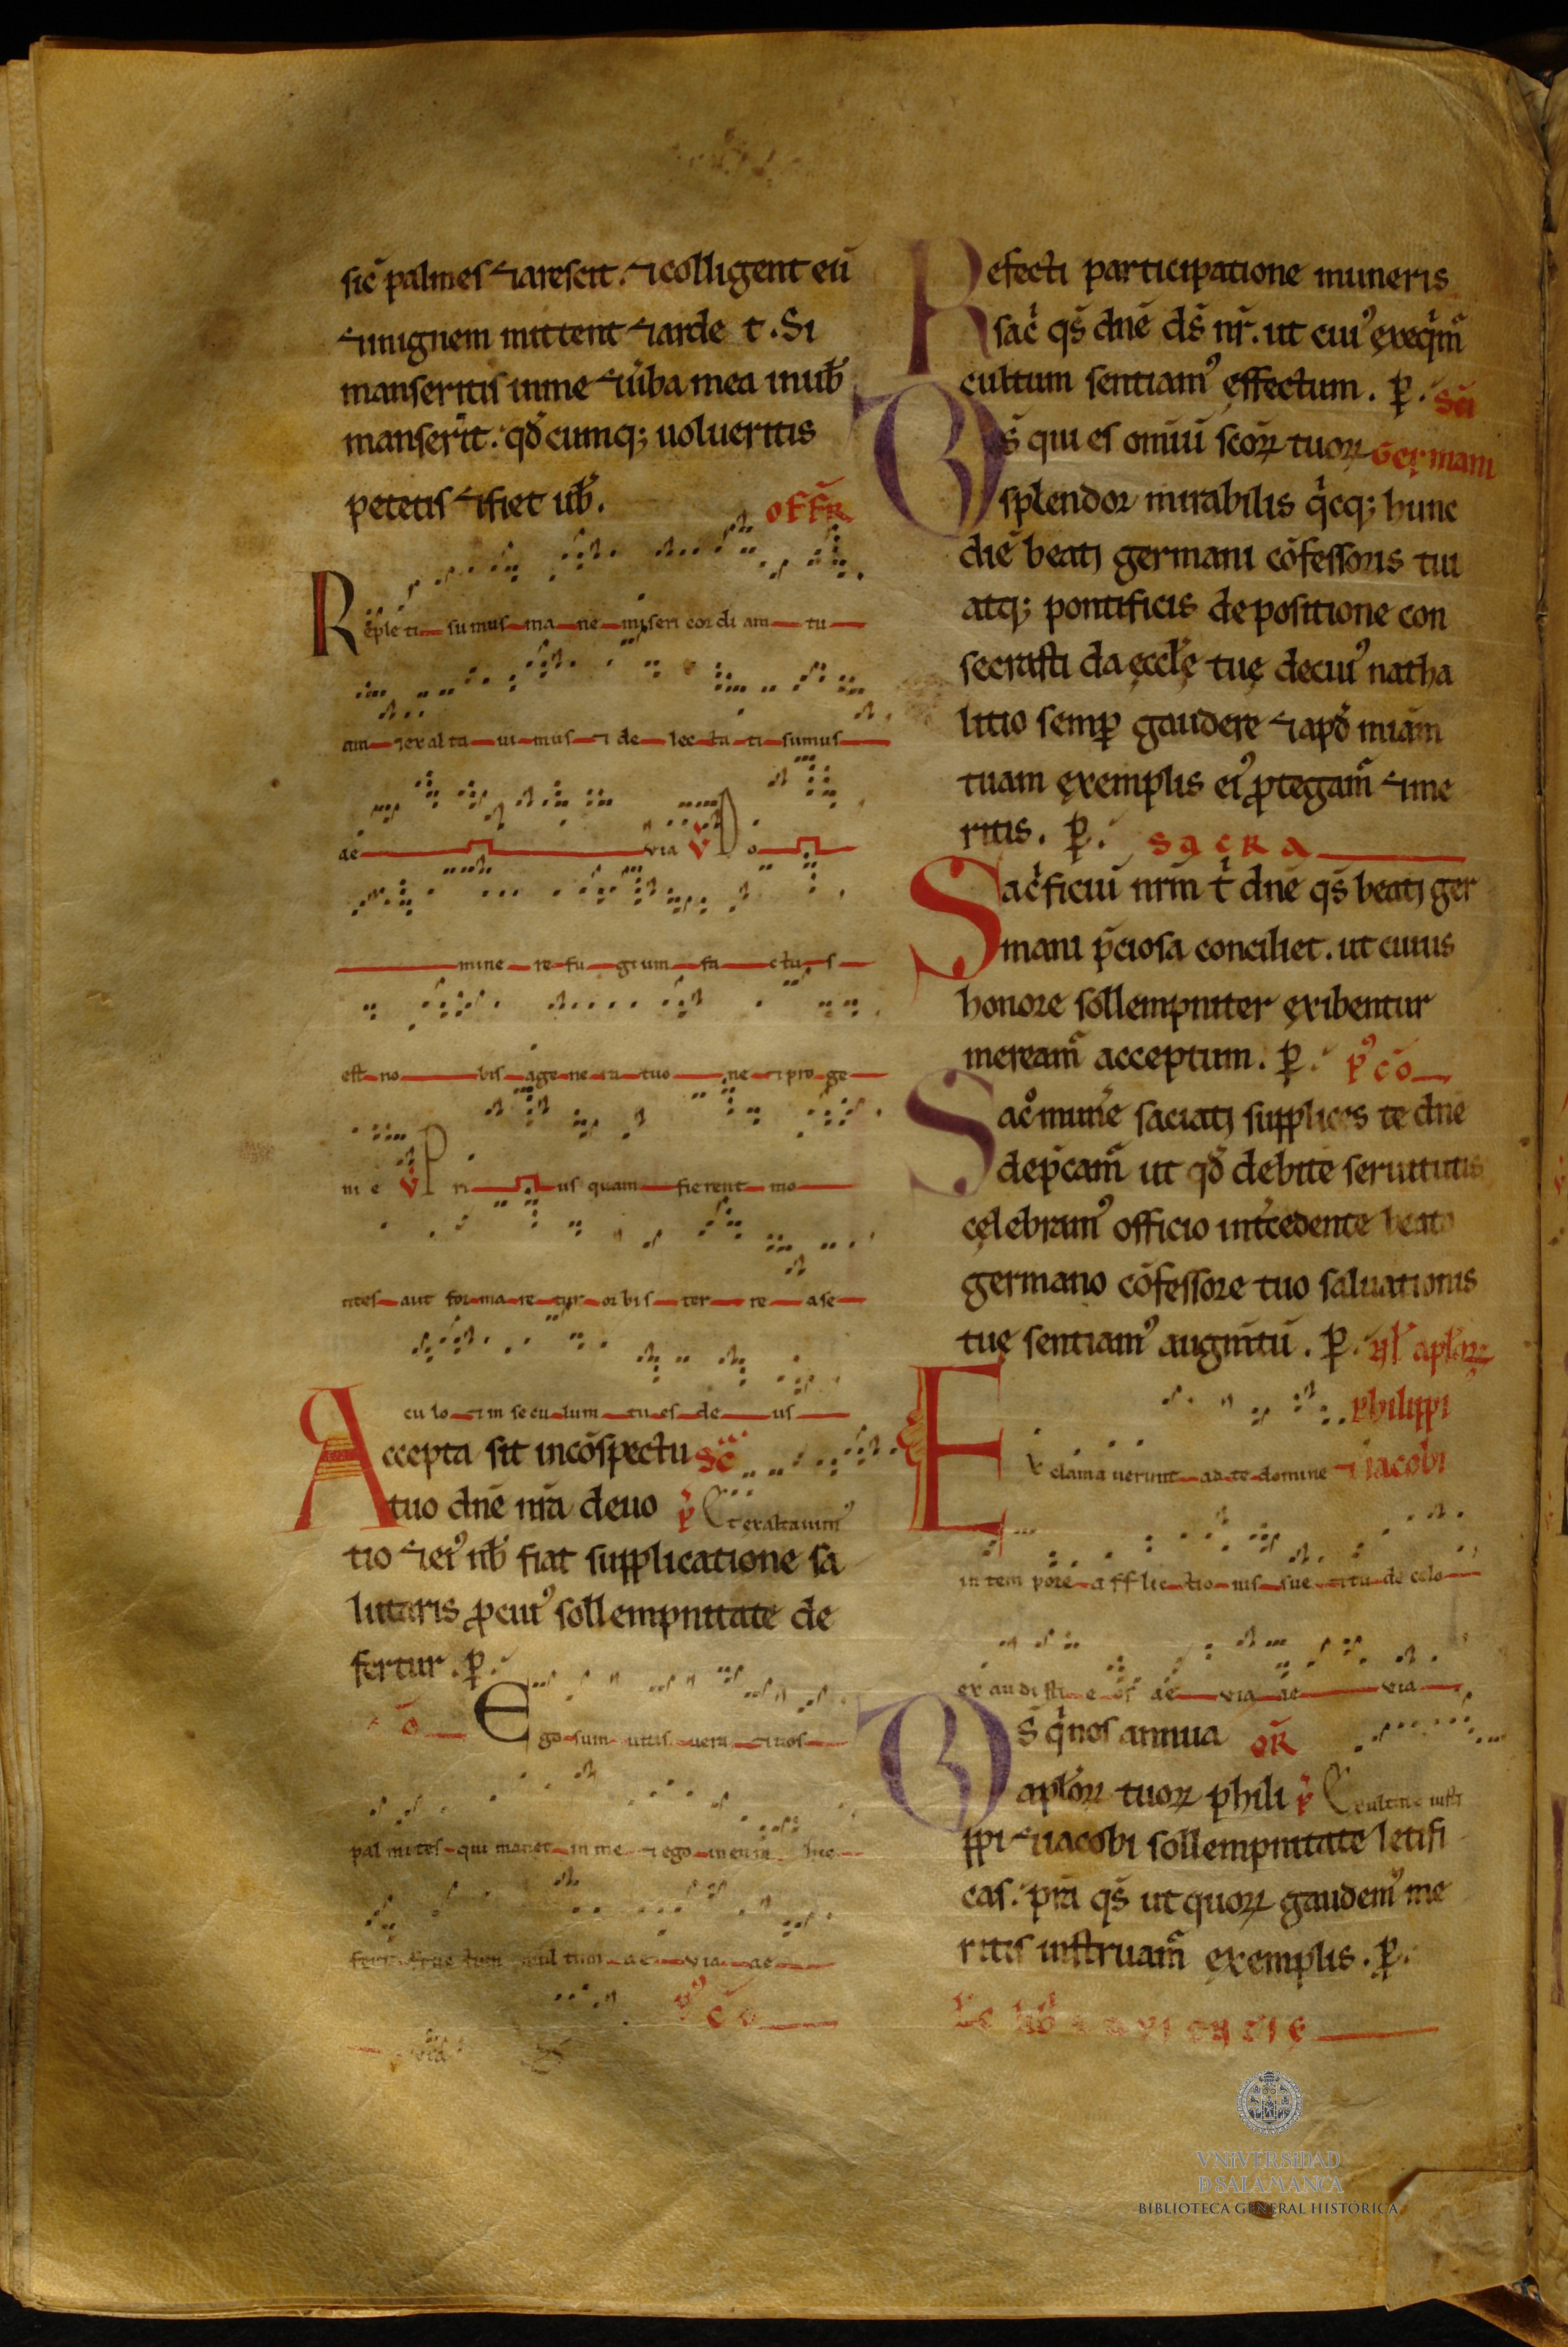 sic̄ palmes ⁊ arescit. ⁊ colligent eū
⁊ inignem mittent ⁊ arde t. Si
manseritis inme ⁊ ūba mea inub̄
manserīt. qd̄ cumq; uolueritis
petetis ⁊ ifiet ub̄. OFFR̄
Repleti sumus ma ne miseri cordi am tu
am ⁊ exal ta ui mus ⁊ de lec ta ti sumus
ae via V Do
mine re fu gium fa ctu s
est no bis a ge ne ra tuo ne ⁊ pro ge
ni e V Pri us quam fierent mo
ntes aut for ma re tur or bis ter re a se
cu lo ⁊ in se cu lum tu es de us
Accepta sit incōspectu Sc̄
tuo dn̄e nr̄a deuo P̄ Et exaltauim᾽
tio ⁊ ei᾽ nb̄ fiat supplicatione sa
lutaris ꝓ cui᾽ sollempnitate de
fertur. ꝑ.
Cō Ego sum uitis uera ⁊ uos
pal mites qui manet in me ⁊ ego in eum hic
fert fruc tum mul tum ae via ae
P᾽ Cō
via
Refecti participatione muneris
sac̄ qs̄ dn̄e ds̄ nr̄. ut cui᾽ exeq̄m̄
cultum sentiam᾽ ęffectum. ꝑ. Sc̄i
Ds̄ qui es omīū scōꝝ tuoꝝ Germani
splendor mirabilis q̄cq; hunc
diē beati germani cōfessoris tui
atq; pontificis depositione con
secrasti da ęccl̄ę tuę decui᾽ natha
litio semꝑ gaudere ⁊ apd̄ miām
tuam ęxemplis ei᾽ ꝓtegam̄ ⁊ me
ritis. ꝑ. SACRA
Sac̄ficiū nr̄m t̄ dn̄e qs̄ beati ger
mani p̄ciosa conciliet. ut cuius
honore sollempniter ęxibentur
meream̄ acceptum. ꝑ. P᾽ Cō
Sac̄ mun̄e saciati supplices te dn̄e
dep̄cam̄ ut qd̄ debite seruitutis
cęlebram᾽ officio int̄cedente beato
germano cōfessore tuo saluationis
tuę sentiam᾽ augm̄tū. ꝑ. apl̄oꝝ
philippi
Exclama uerunt ad te domine ⁊ iacobi
in tem pore afflic tio nis sue ⁊ tu de celo
ex au di sti e os ae via ae via
Ds̄ q̄ nos annua OR̄
apl̄oꝝ tuoꝝ phili P̄ Exultate iusti
ppi ⁊ iacobi sollempnitate letifi
cas. pr̄a qs̄ ut quoꝝ gaudem᾽ me
ritis instruam̄ ęxemplis. ꝑ.
Lc̄ lib̄ sapiencię
VNIVERSIDAD
D SALAMANCA
BIBLIOTECA GENERAL HISTÓRICA